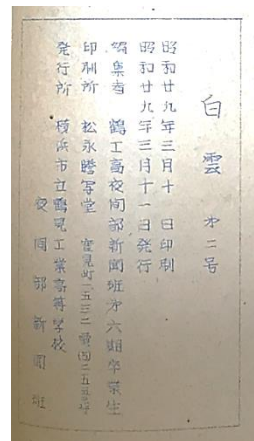 白雲 才二号
昭和廿九年三月十日印刷
昭和廿九年三月十一日発行
編集者 鶴工高夜间部新聞班才六期卒業生
印刷所 松永謄写堂
発行所 横浜市立鶴見工業高等学校
夜间部新聞班